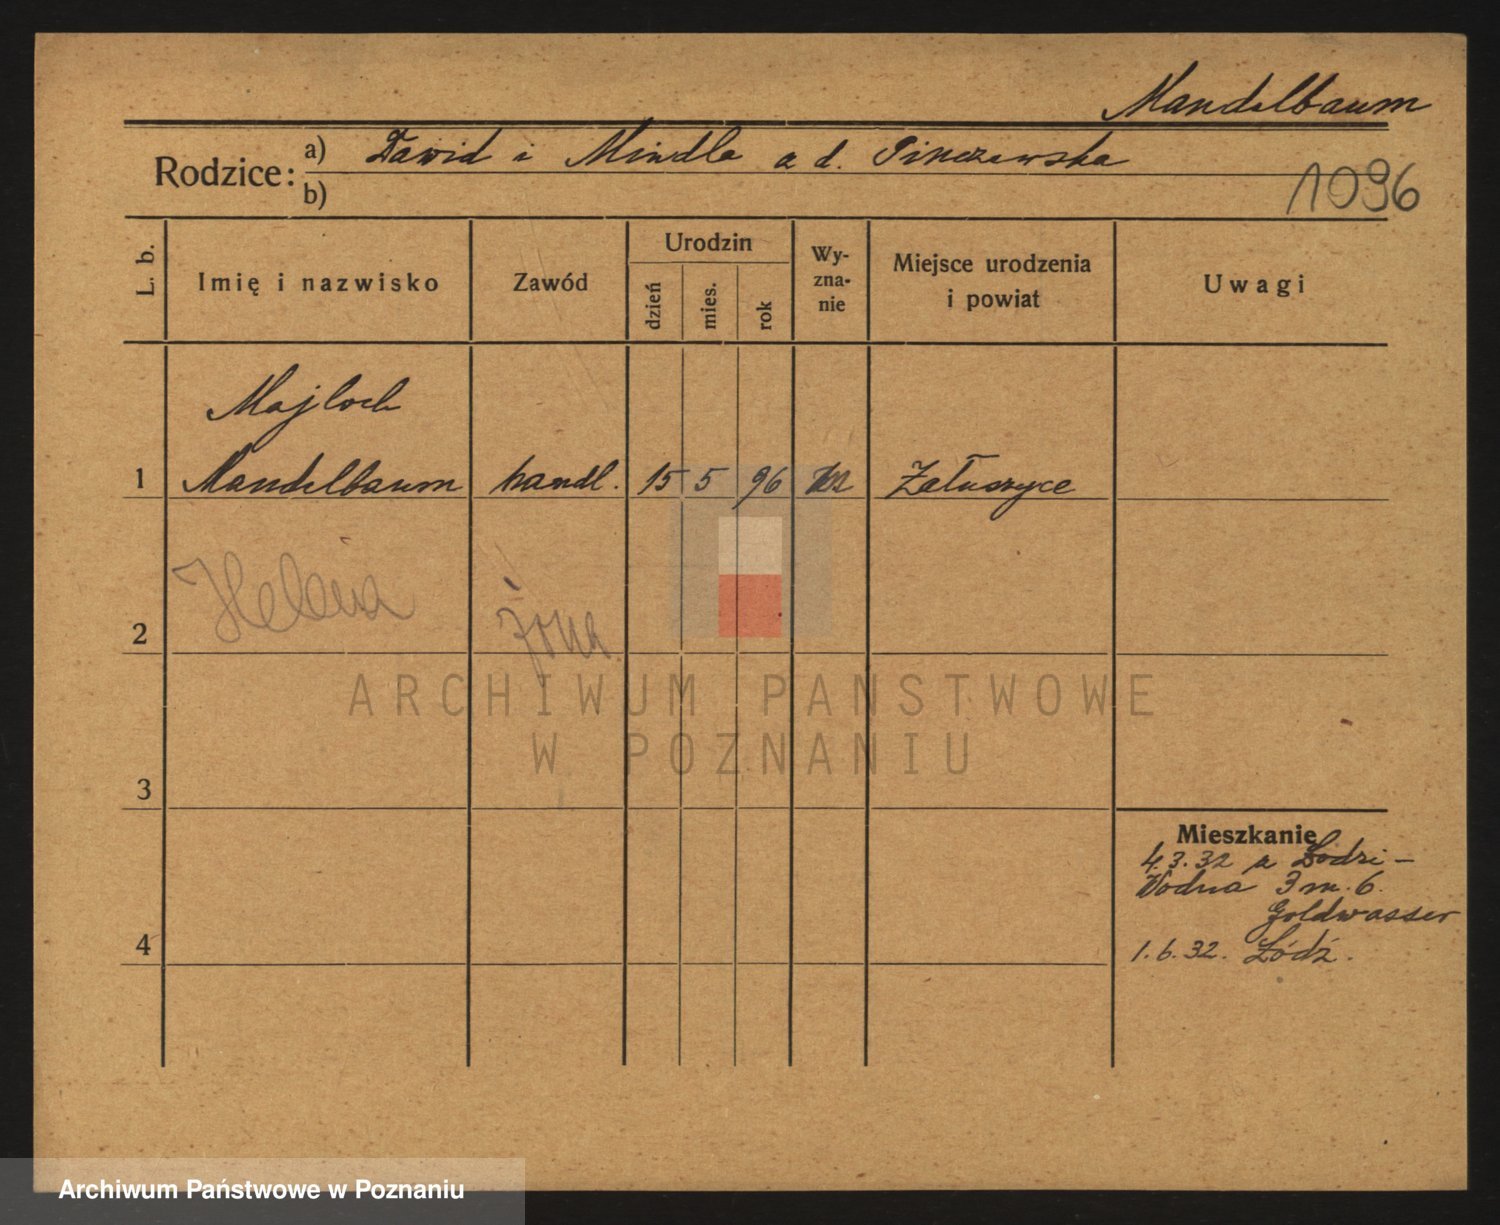 Mandelbaum
Rodzice: a) Dawid i Mindla z d. Pinczewska
b)
1096
L. b.
Imię i nazwisko
Zawód
Urodzin
dzień
mies.
rok
Wy-
zna-
nie
Miejsce urodzenia
i powiat
Uwagi
Majloch
1 Mandelbaum handl. 15 5 96 Załuszyce
2 Helena żona
3
4
Mieszkanie
4.3.32 z Łodzi –
Wodna 3 m. 6.
Goldwasser
1.6.32. Łódź.
ARCHIWUM PANSTWOWE
W POZNANIU
Archiwum Państwowe w Poznaniu